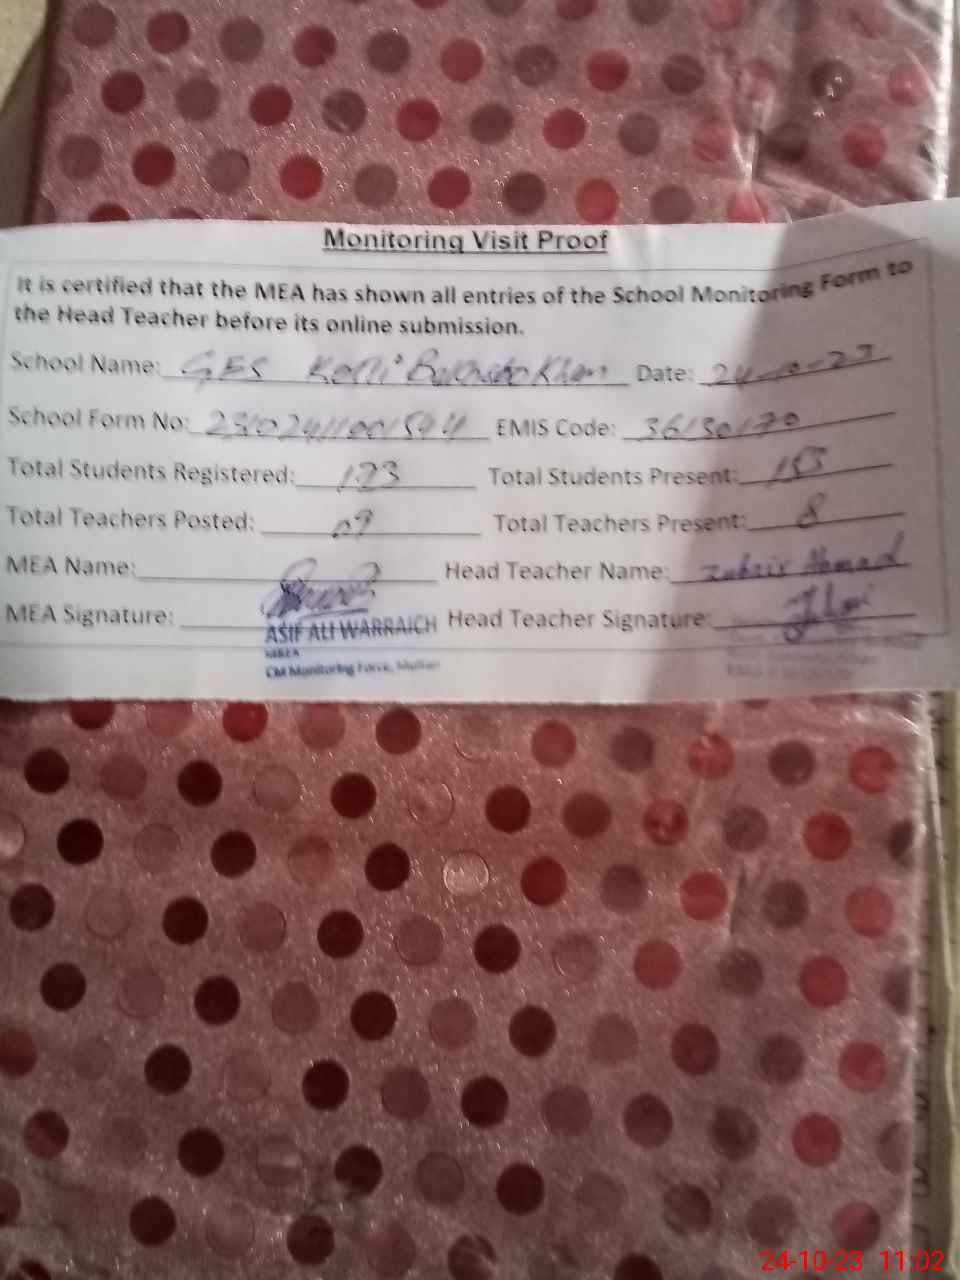 Monitoring Visit Proof
It is certified that the MEA has shown all entries of the School Monitoring Form to
the Head Teacher before its online submission.
School Name: GES Khan Date: 24-10-23
School Form No: EMIS Code: 36130170
Total Students Registered: Total Students Present: 153
Total Teachers Posted: 09 Total Teachers Present: 8
MEA Name: Head Teacher Name: Zubair Ahmad
MEA Signature: Head Teacher Signature:
ASIF ALI WARRAICH
CM Monitoring Force, Multan
24-10-23 11:02